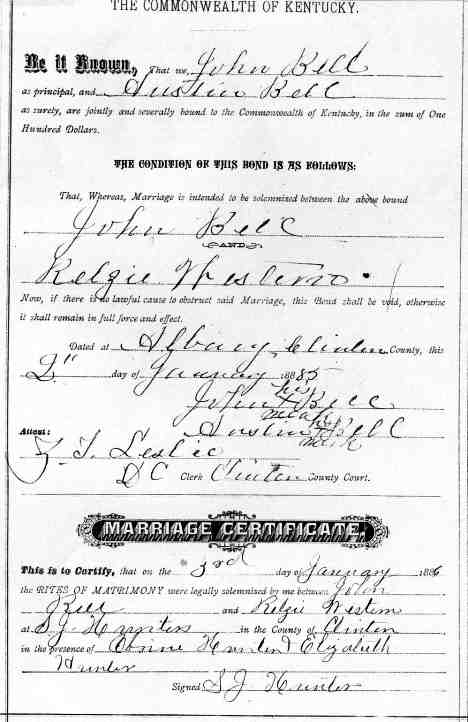 THE COMMONWEALTH OF KENTUCKY.
Be it Known, That we, John Bell
as principal, and Austin Bell
as surely, are jointly and severally bound to the Commonwealth of Kentucky, in the sum of One
Hundred Dollars.
THE CONDITION OF THIS BOND IS AS FOLLOWS:
That, Whereas, Marriage is intended to be solemnized between the above bound
John Bell
AND
Kelzie Westmo
Now, if there is no lawful cause to obstruct said Marriage, this Bond shall be void, otherwise
it shall remain in full force and effect.
Dated at Albany, Clinton County, this
2" day of January 1885
his
John + Bell
mark
his
Austin + Bell
mark
Attest:
J. T. Leslie
D C Clerk Clinton County Court.
MARRIAGE CERTIFICATE.
This is to Certify, that on the 3rd day of January 1886
the RITES OF MATRIMONY were legally solemnized by me between John
Bell and Kelzie Westmo
at S J Hunters in the County of Clinton
in the presence of Hunter Elizabeth
Hunter
Signed S J Hunter